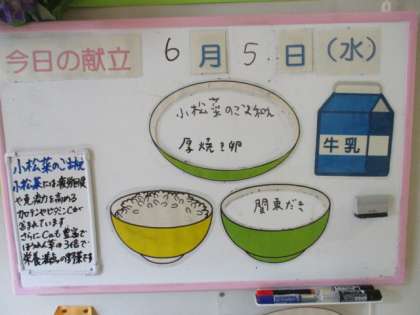 今日の献立 6月5日(水)
小松菜のごま和え
厚焼き卵
牛乳
関東だき
小松菜のごま和え
小松菜には疲労回復
や免疫力を高める
カロテンやビタミンCが
含まれています
さらにCaも豊富で
ほうれん草の3倍で
栄養満点の野菜です